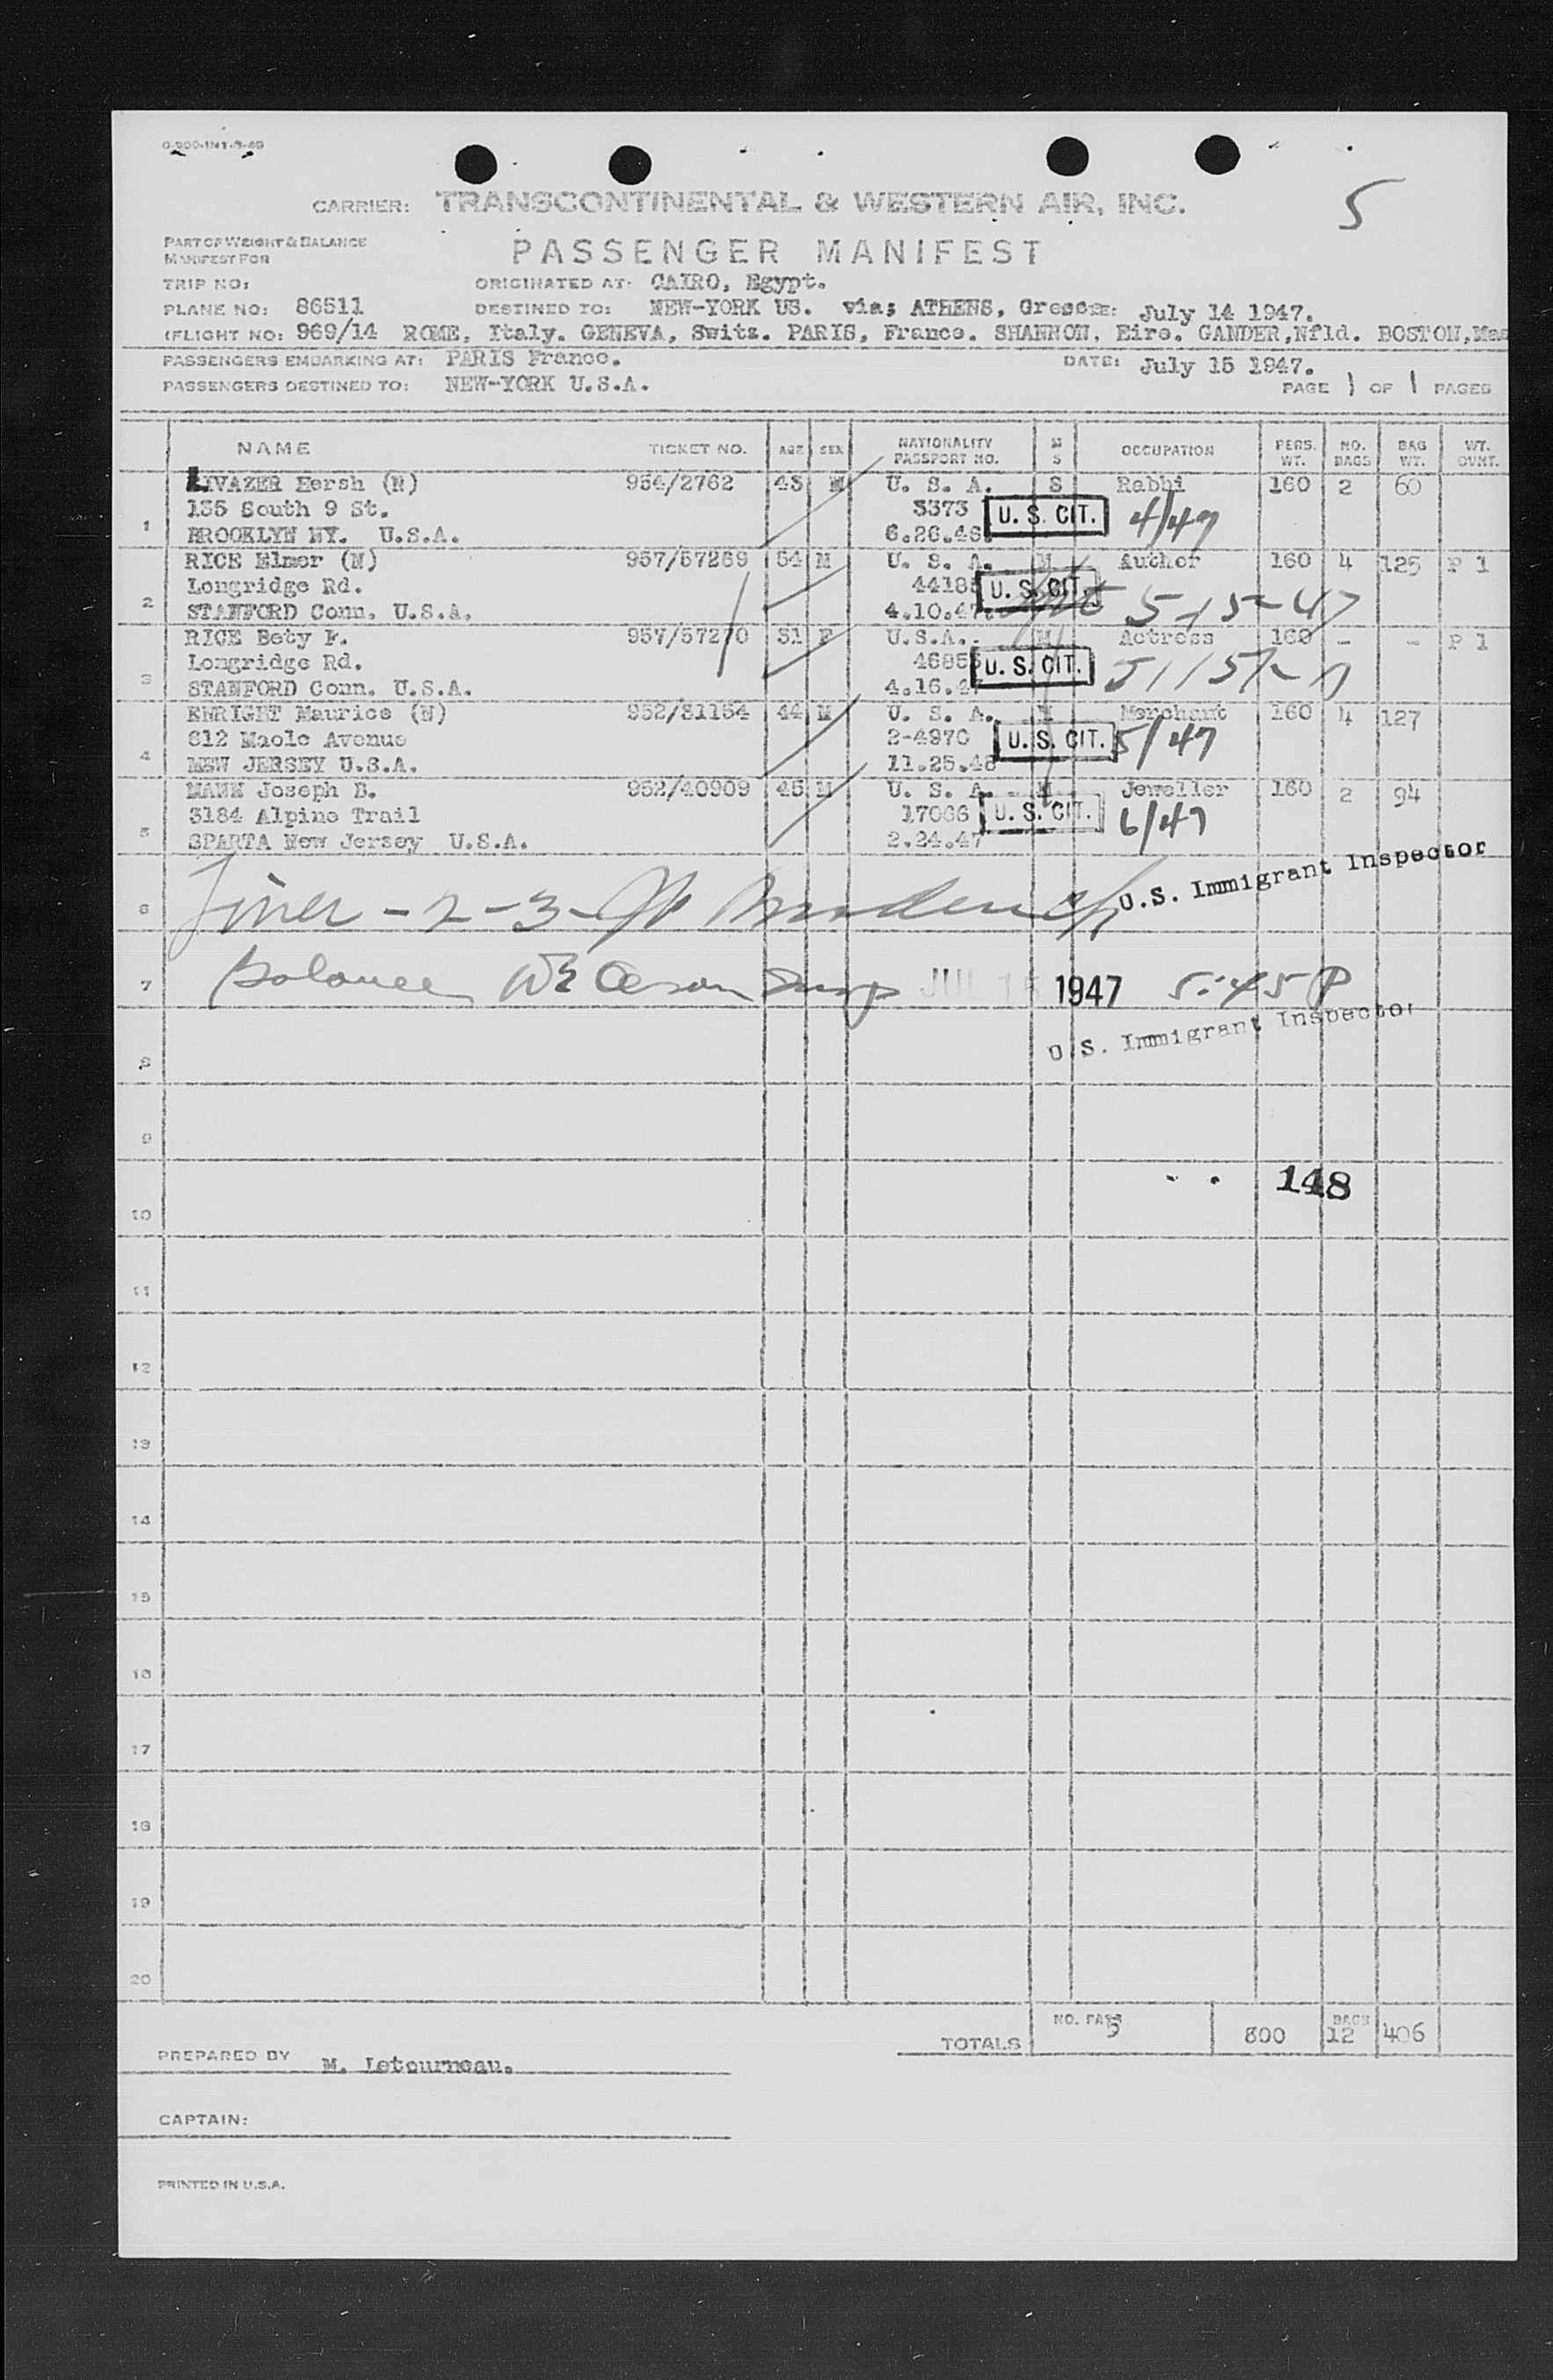 G-900-INT-9-46
5
CARRIER: TRANSCONTINENTAL & WESTERN AIR, INC.
PART OF WEIGHT & BALANCE
MANIFEST FOR
PASSENGER MANIFEST
TRIP NO: ORIGINATED AT: CAIRO, Egypt.
PLANE NO: 86511 DESTINED TO: NEW-YORK US. via; ATHENS, Greece July 14 1947.
(FLIGHT NO: 969/14 ROME, Italy. GENEVA, Switz. PARIS, France. SHANNON, Eire. GANDER,Nfld. BOSTON,Mas
PASSENGERS EMBARKING AT: PARIS France. DATE: July 15 1947.
PASSENGERS DESTINED TO: NEW-YORK U.S.A. PAGE 1 OF 1 PAGES
NAME TICKET NO. AGE SEX NATIONALITY PASSPORT NO. M S OCCUPATION PERS. WT. NO. BAGS BAG WT. WT. OVHT.
LIVAZER Hersh (N) 954/2762 43 M U. S. A. S Rabbi 160 2 60
135 South 9 St. 3373 U. S. CIT. 4/47
1 BROOKLYN NY. U.S.A. 6.26.46.
RICE Elmer (N) 957/57269 54 M U. S. A. M Author 160 4 125 P 1
Longridge Rd. 4418 U. S. CIT.
2 STAMFORD Conn. U.S.A. 4.10.47. 5-15-47
RICE Bety F. 957/57270 31 F U.S.A. M Actress 160 - - P 1
Longridge Rd. 4685 U. S. CIT.
3 STAMFORD Conn. U.S.A. 4.16.47
ENRIGHT Maurice (N) 952/31154 44 M U. S. A. M Merchant 160 4 127
812 Maole Avenue 2-4970 U. S. CIT. 5/47
4 NEW JERSEY U.S.A. 11.25.46
MANN Joseph B. 952/40909 45 M U. S. A. M Jeweller 160 2 94
3184 Alpine Trail 17066 U. S. CIT. 6/47
5 SPARTA New Jersey U.S.A. 2.24.47
U.S. Immigrant Inspector
6 Lines - 2 - 3 -
7 Balance JUL 15 1947 5:45 P
U.S. Immigrant Inspector
8
9
148
10
11
12
13
14
15
16
17
18
19
20
TOTALS NO. PASS 5 800 BAGS 12 406
PREPARED BY M. Letourneau.
CAPTAIN:
PRINTED IN U.S.A.